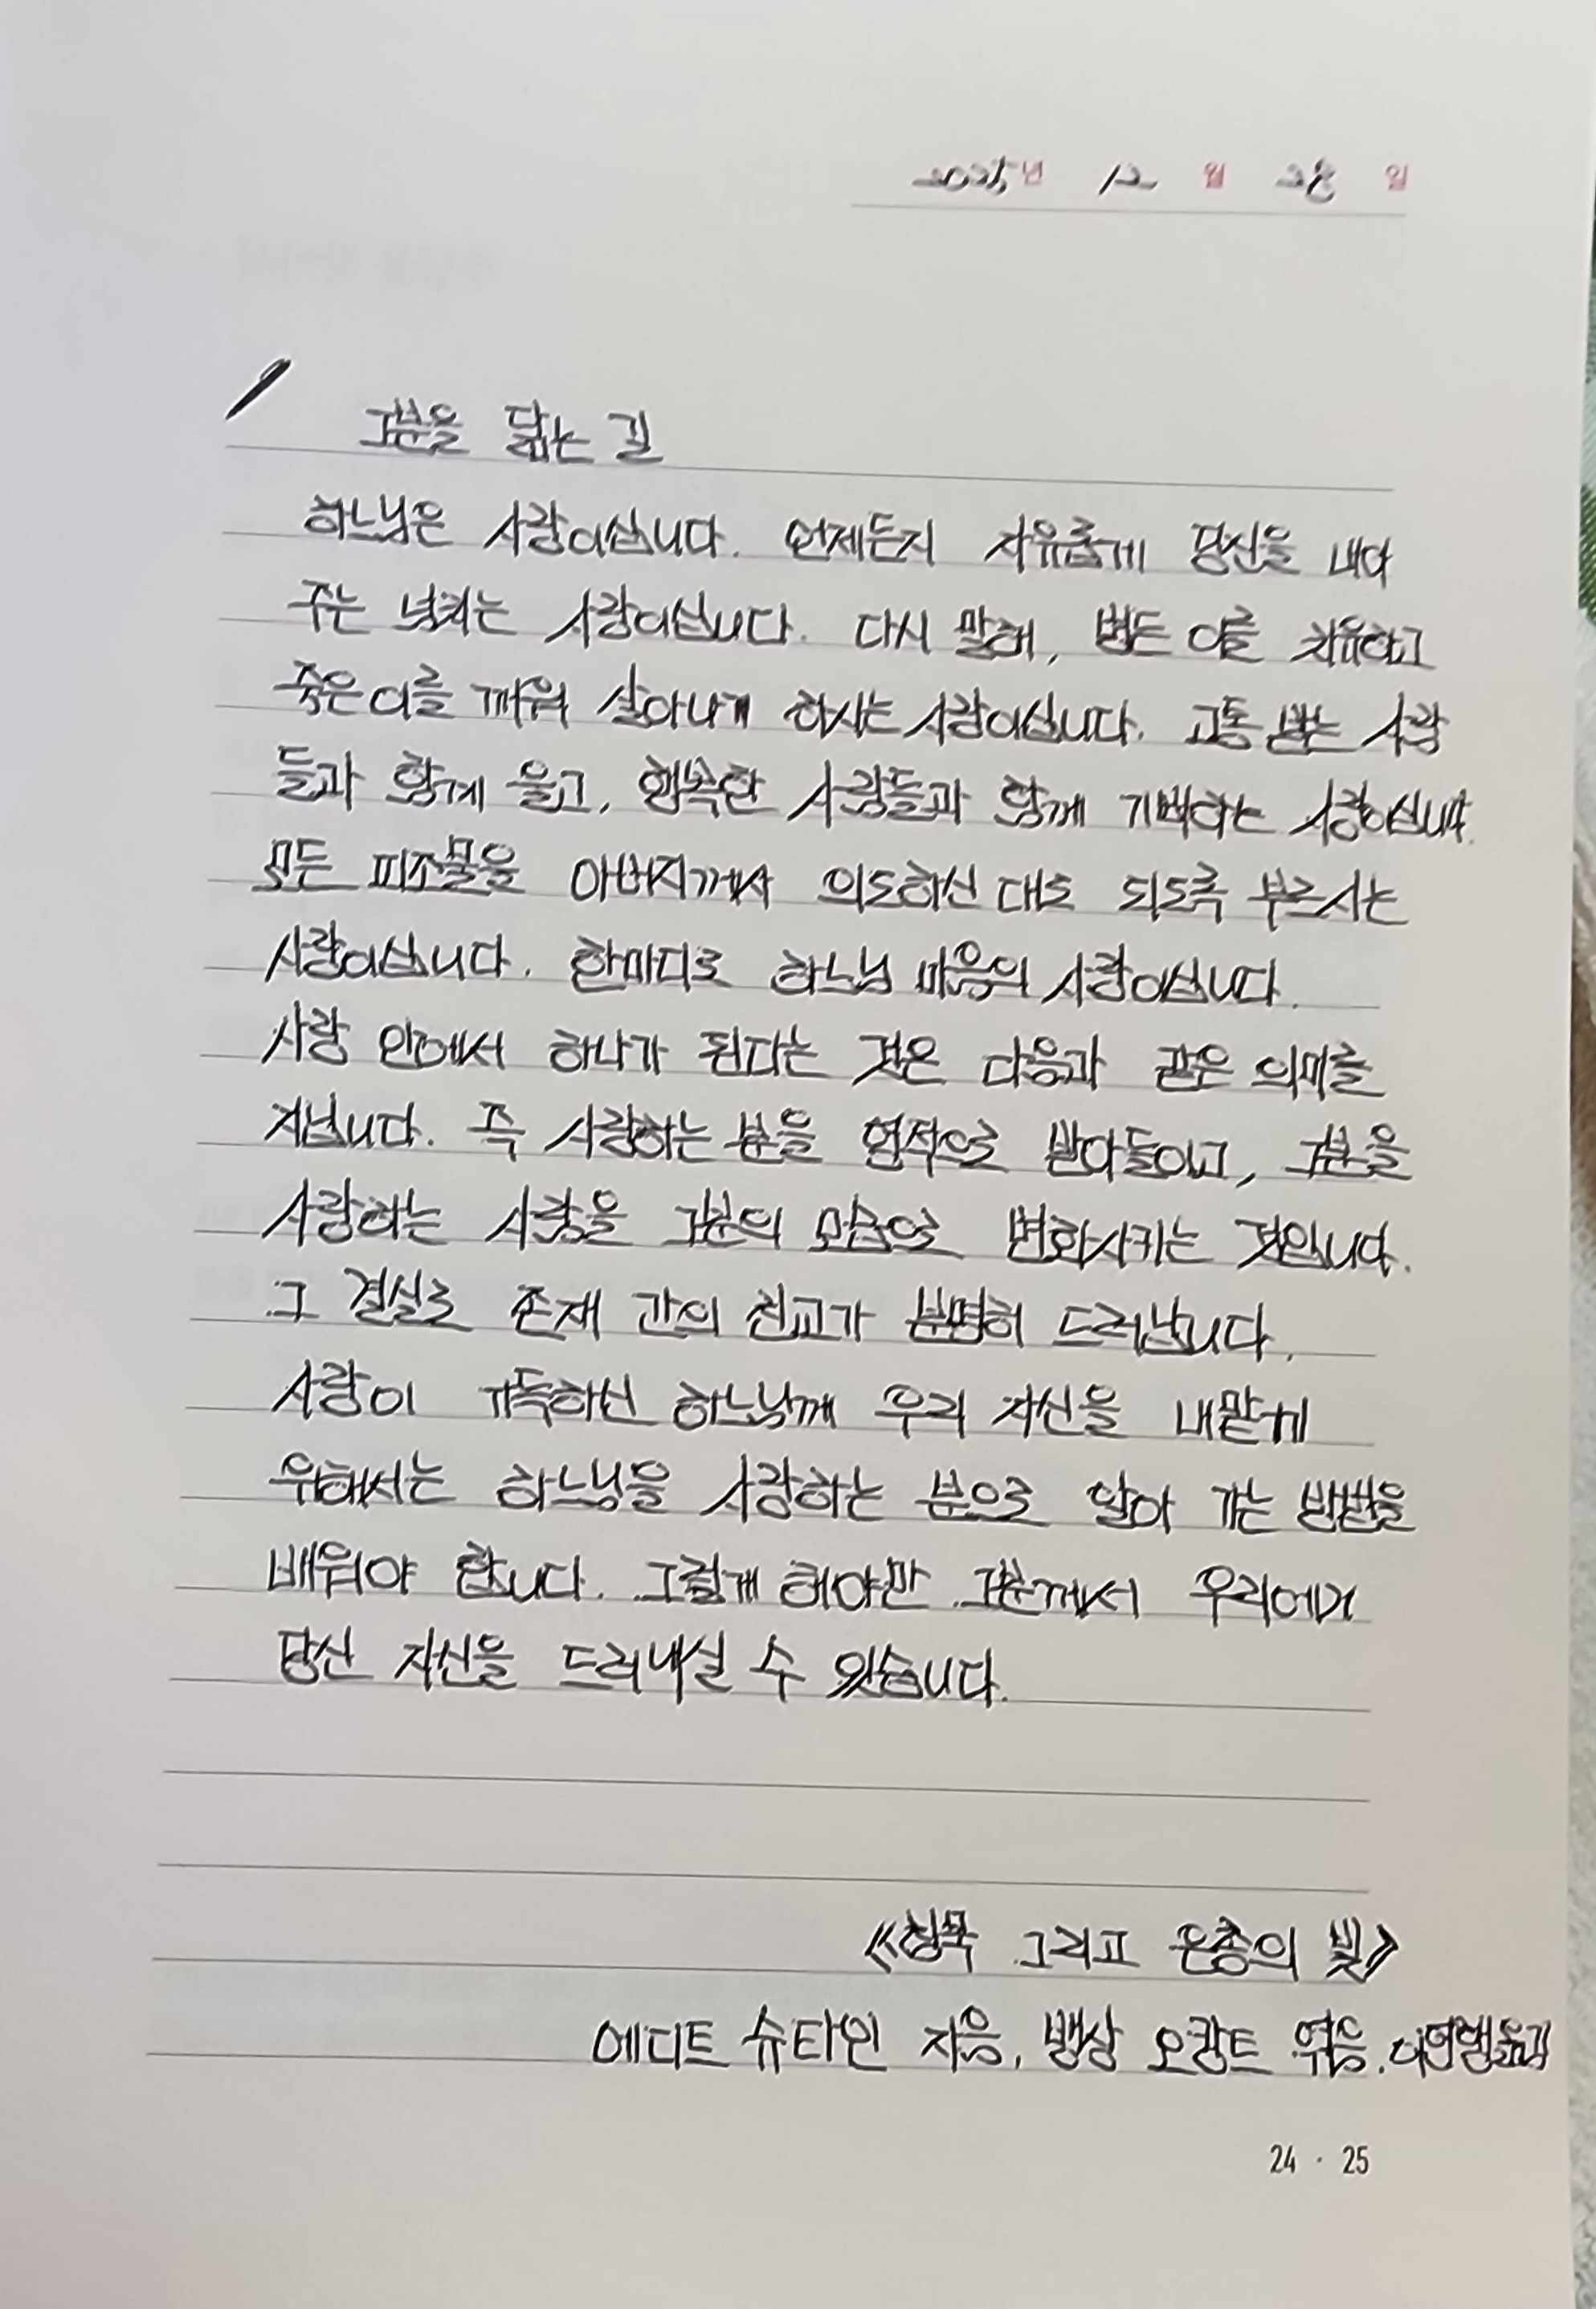 2025년 12 월 28 일
그분을 닮는 길
하느님은 사랑이십니다. 언제든지 자유롭게 당신을 내어
주는 넘치는 사랑이십니다. 다시 말해, 병든 이를 치유하고
죽은 이를 깨워 살아나게 하시는 사랑이십니다. 고통 받는 사람
들과 함께 울고, 행복한 사람들과 함께 기뻐하는 사랑이십니다.
모든 피조물을 아버지께서 의도하신 대로 되도록 부르시는
사랑이십니다. 한마디로 하느님 마음의 사랑이십니다.
사랑 안에서 하나가 된다는 것은 다음과 같은 의미를
지닙니다. 즉 사랑하는 분을 영적으로 받아들이고, 그분을
사랑하는 사람을 그분의 모습으로 변화시키는 것입니다.
그 결실로 존재 간의 친교가 분명히 드러납니다.
사랑이 가득하신 하느님께 우리 자신을 내맡기
위해서는 하느님을 사랑하는 분으로 알아 가는 방법을
배워야 합니다. 그렇게 해야만 그분께서 우리에게
당신 자신을 드러내실 수 있습니다.
《침묵 그리고 은총의 빛》
에디트 슈타인 지음, 뱅상 오캉트 엮음, 이연행 옮김
24 · 25